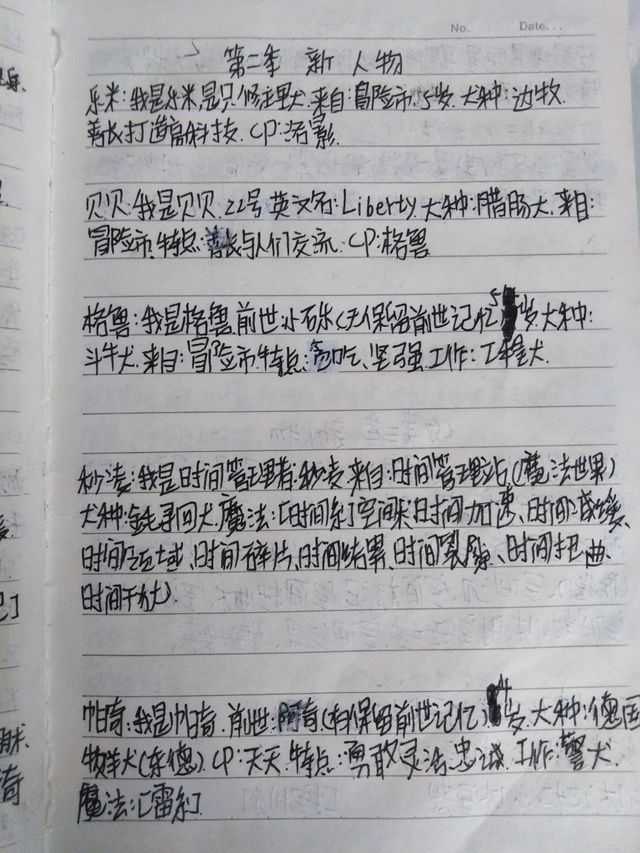 No.
Date...
第二季 新 人物
乐米:我是乐米是只修理犬.来自:冒险市.5岁.犬种:边牧.
善长打造高科技.CP:洛影.
贝贝:我是贝贝.22号 英汉名:Liberty.犬种:腊肠犬.来自:
冒险市.特点:善长与人们交流.CP:格鲁
格鲁:我是格鲁.前世:小砾(无保留前世记忆)5岁.犬种:
斗牛犬.来自:冒险市.特点:贪吃、坚强.工作:工程犬.
秒表:我是时间管理者.秒表.来自:时间管理站.(魔法世界)
犬种:金毛寻回犬.魔法:[时间系]空间系(时间加速、时间减缓、
时间区域、时间碎片、时间结界、时间裂隙、时间扭曲、
时间干扰).
帕奇:我是帕奇.前世:阿奇(有保留前世记忆)4岁.犬种:德国
牧羊犬(东德).CP:天天.特点:勇敢灵活、忠诚.工作:警犬.
魔法:[雷系]